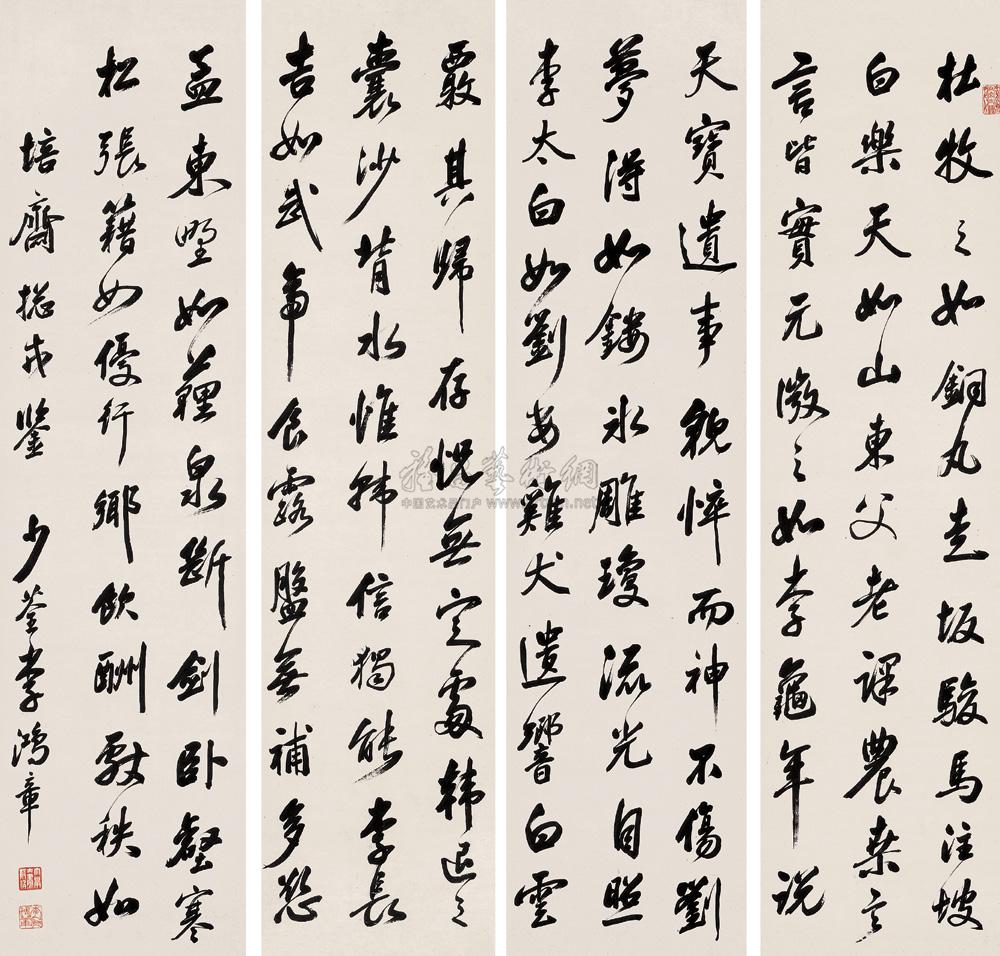 杜牧之如銅丸走坂駿馬注坡
白樂天如山東父老課農桑言
言皆實元微之如李龜年說
天寶遺事貌悴而神不傷劉
夢得如鏤冰雕瓊流光自照
李太白如劉安雞犬遺響白雲
覈其歸存恍無定處韓退之
囊沙背水惟韓信獨能李長
吉如武帝食露盤無補多慾
孟東野如薶泉斷劍臥壑寒
松張籍如優行鄉飲酬獻秩如
培齋總戎鑒 少荃李鴻章
藝術網
中国艺术品门户